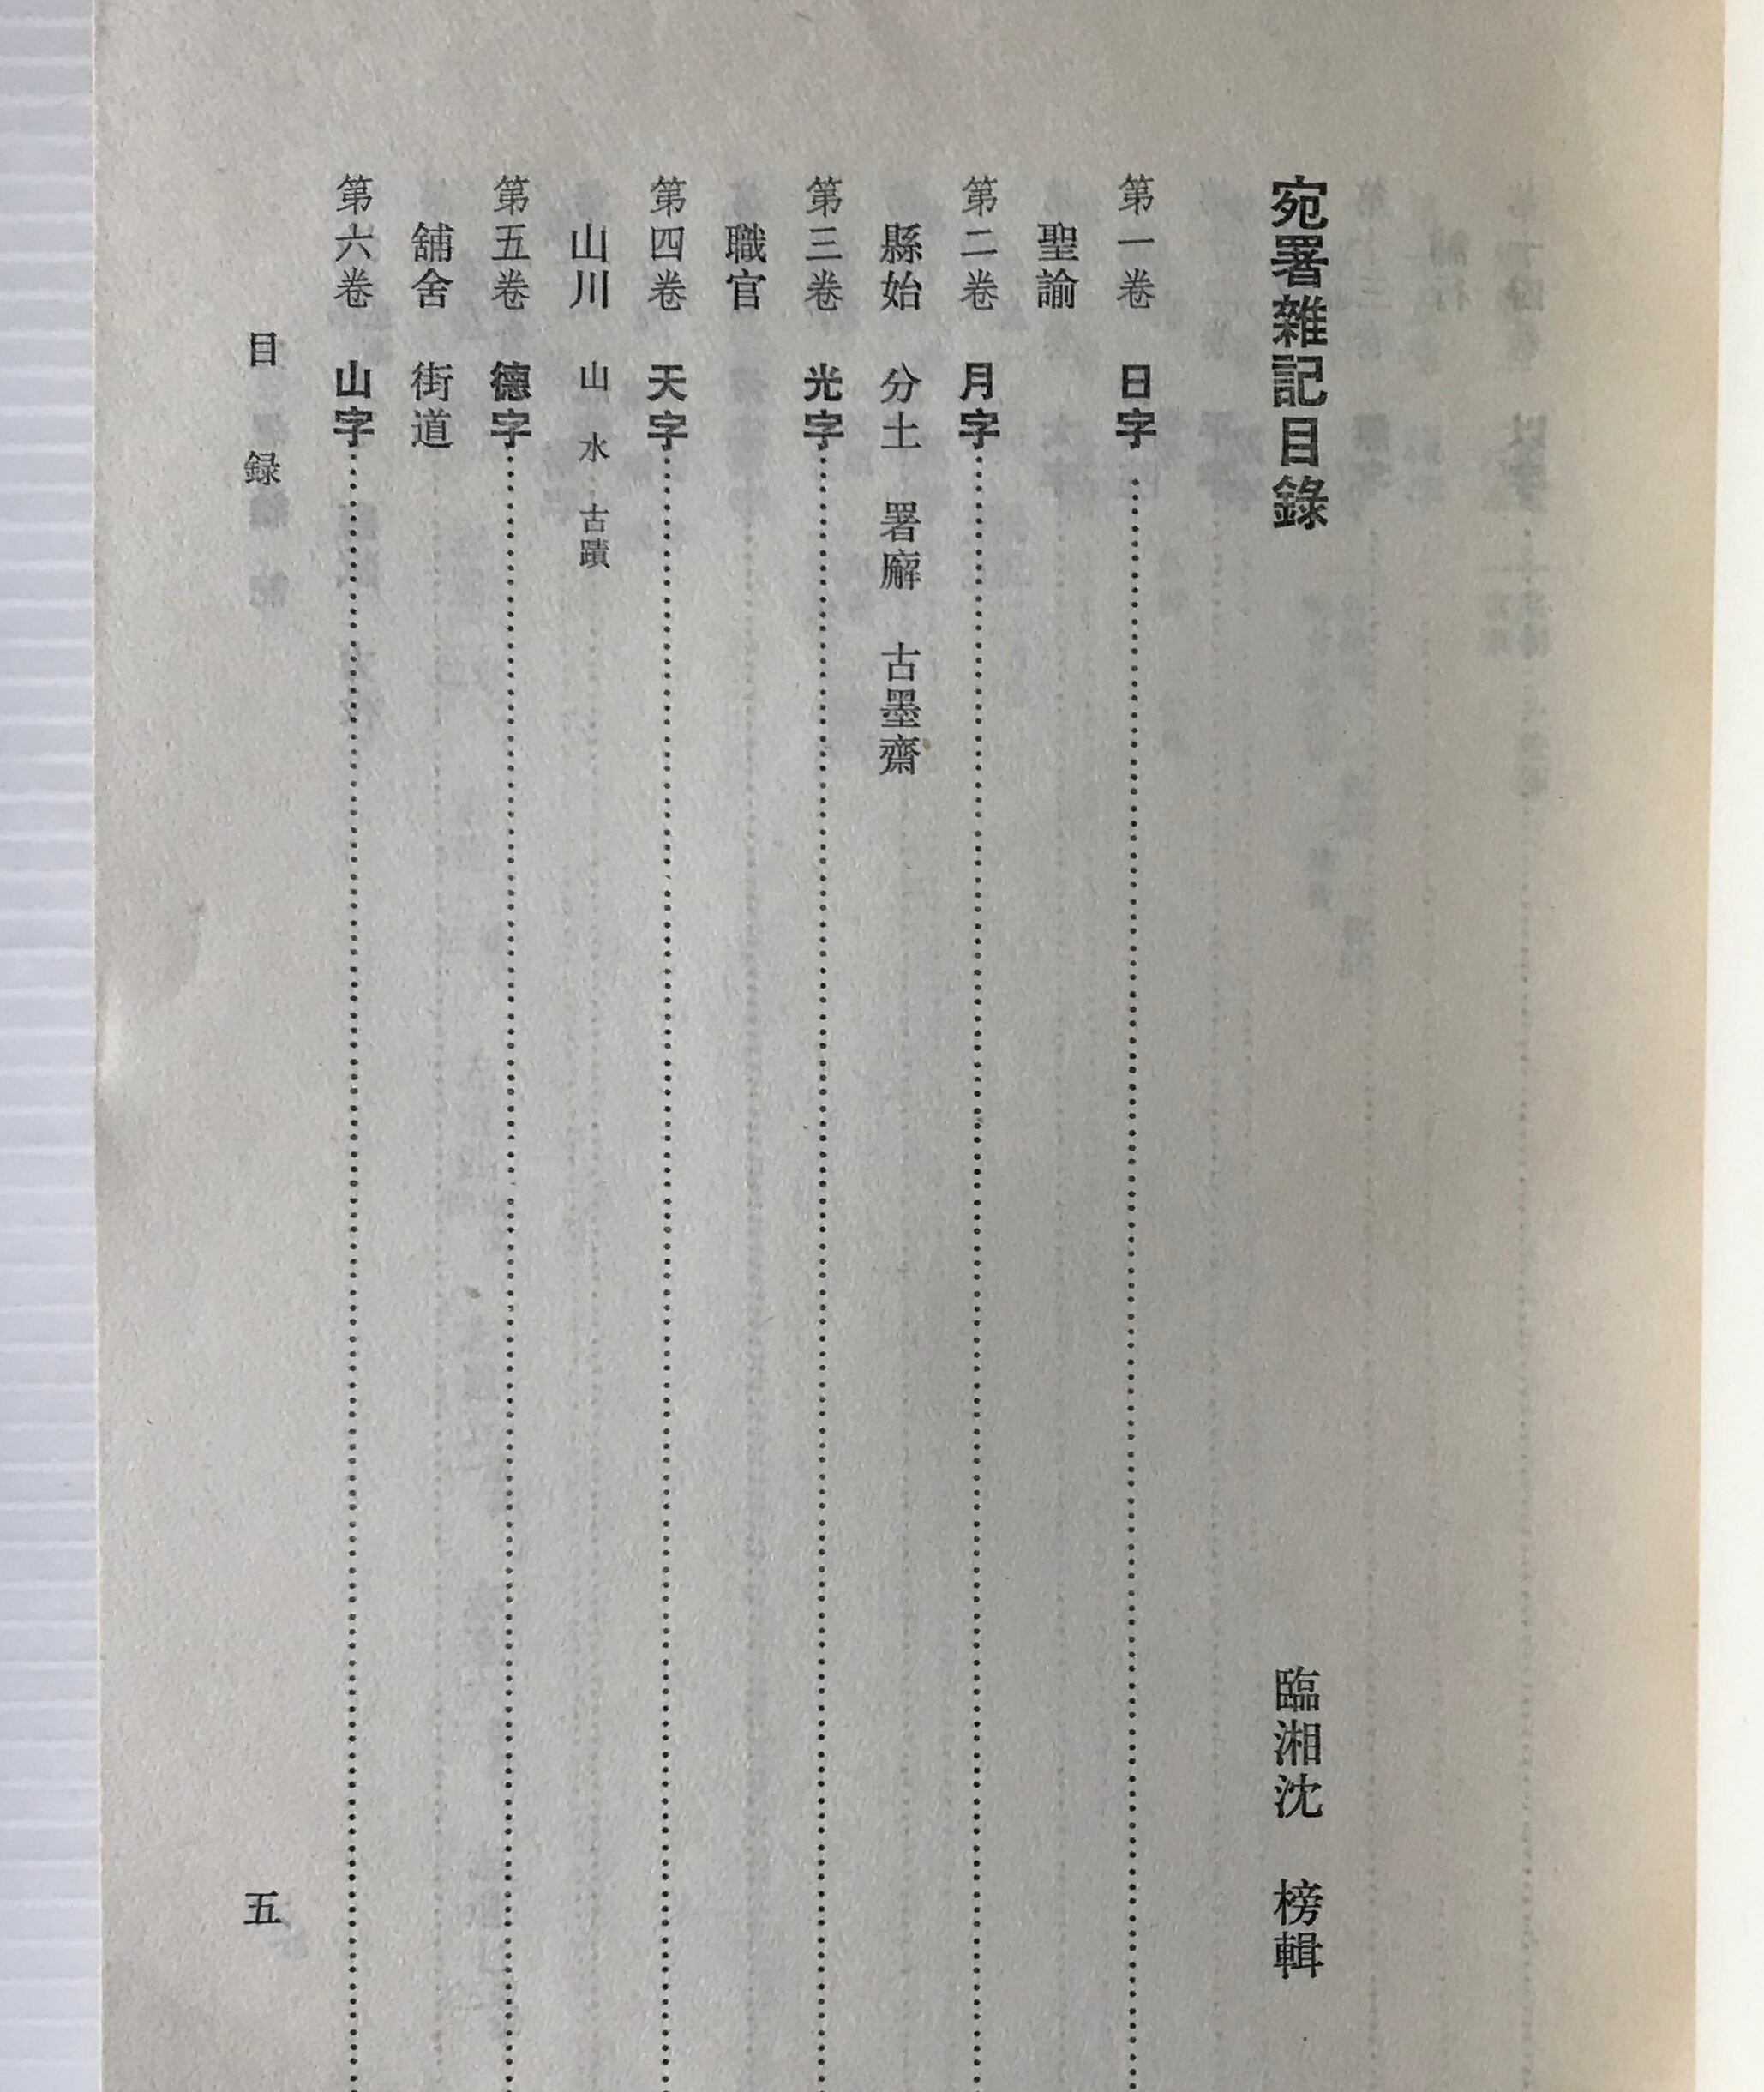 宛署雜記目錄
臨湘沈　榜輯
第一卷　日字
聖諭
第二卷　月字
縣始　分土　署廨　古墨齋
第三卷　光字
職官
第四卷　天字
山川　山　水　古蹟
第五卷　德字
舖舍　街道
第六卷　山字
目　録
五